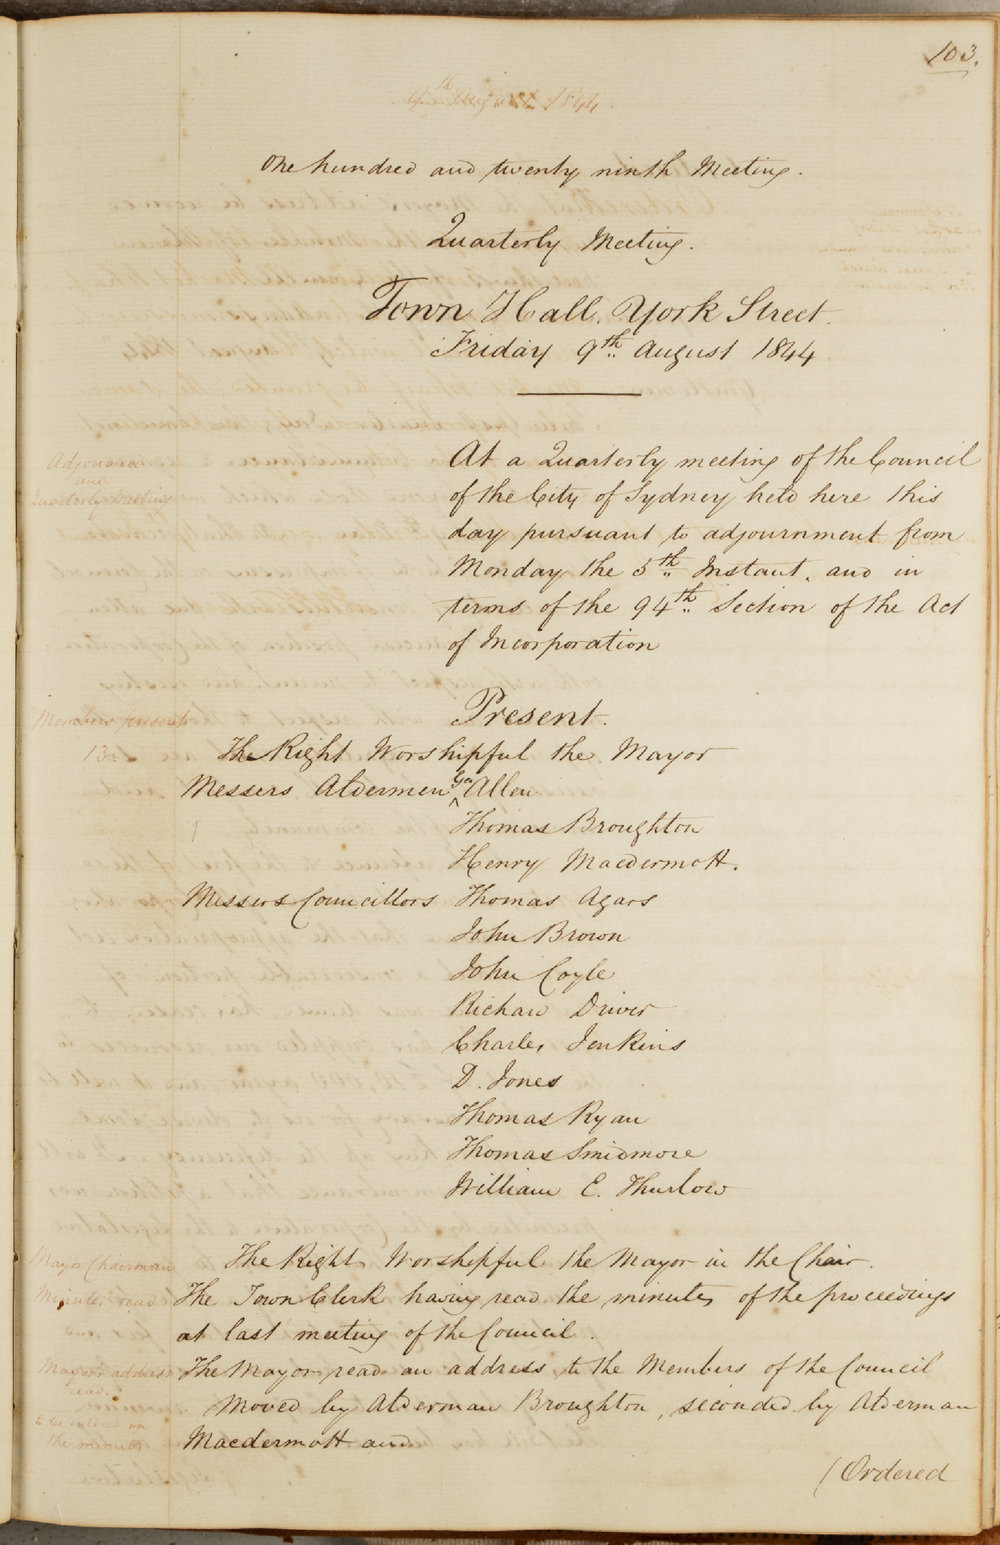 103.
9th August 1844
One hundred and twenty ninth Meeting.
Quarterly Meeting.
Town Hall. York Street.
Friday 9th August 1844
Adjourned
and
Quarterly Meeting
At a Quarterly meeting of the Council
of the City of Sydney held here this
day pursuant to adjournment from
Monday the 5th Instant, and in
terms of the 94th Section of the Act
of Incorporation
Members present
13
Present.
The Right Worshipful the Mayor
Messers Aldermen Geo Allen
Thomas Broughton
Henry Macdermott.
Messers Councillors Thomas Agars
John Brown
John Coyle
Richard Driver
Charles Jenkins
D. Jones
Thomas Ryan
Thomas Smidmore
William E. Thurlow
Mayor Chairman
The Right Worshipful the Mayor in the Chair.
Minutes read
The Town Clerk having read the minutes of the proceedings
at last meeting of the Council.
Mayor's address
read.
The Mayor read an address to the Members of the Council
to be entered on
the minutes
Moved by Alderman Broughton, seconded by Alderman
Macdermott and
(Ordered